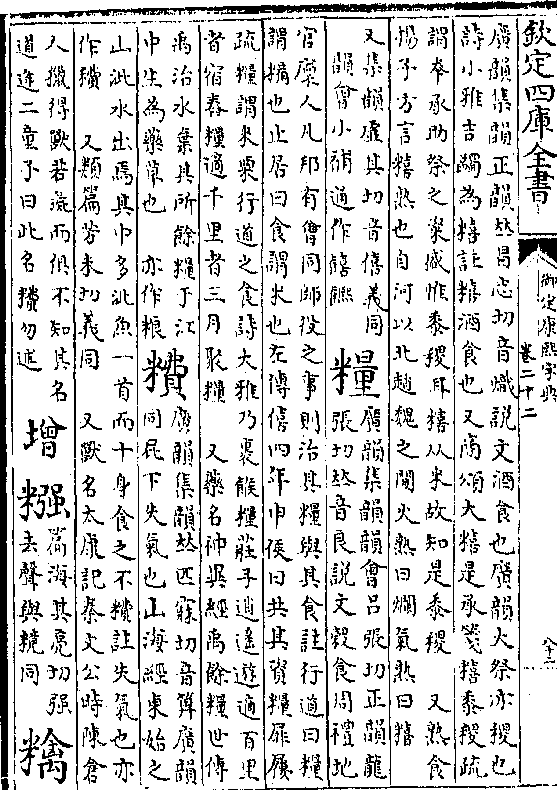 欽定四庫全書
御定康熙字典
卷二十二
廣韻集韻正韻𠀤昌志切音熾説文酒食也廣韻大祭亦稷也
詩小雅吉蠲為糦註糦酒食也又商頌大糦是承箋糦黍稷疏
謂奉承助祭之粢盛惟黍稷耳糦从米故知是黍稷　又熟食
揚子方言糦熟也自河以北趙魏之間火熟曰爛氣熟曰糦
又集韻虛其切音僖義同
韻會小補通作饎
糧
廣韻集韻韻會呂張切正韻龍
張切𠀤音良説文穀食周禮地
官廩人凡邦有會同師役之事則治其糧與其食註行道曰糧
謂糒也止居曰食謂米也左傳僖四年申侯曰共其資糧屝屨
疏糧謂米粟行道之食詩大雅乃裹餱糧莊子逍遙遊適百里
者宿舂糧適千里者三月聚糧　又藥名神異經禹餘糧世傳
禹治水棄其所餘糧于江
中生為藥草也　亦作粮
䊧
廣韻集韻𠀤匹寐切音𥳽廣韻
同屁下失氣也山海經東始之
山泚水出焉其中多泚魚一首而十身食之不䊧註失氣也亦
作䊧　又類篇芳未切義同　又獸名太康記秦文公時陳倉
人獵得獸若彘而俱不知其名
道逢二童子曰此名䊧勿述
增
糨
篇海其亮切强
去聲與糡同